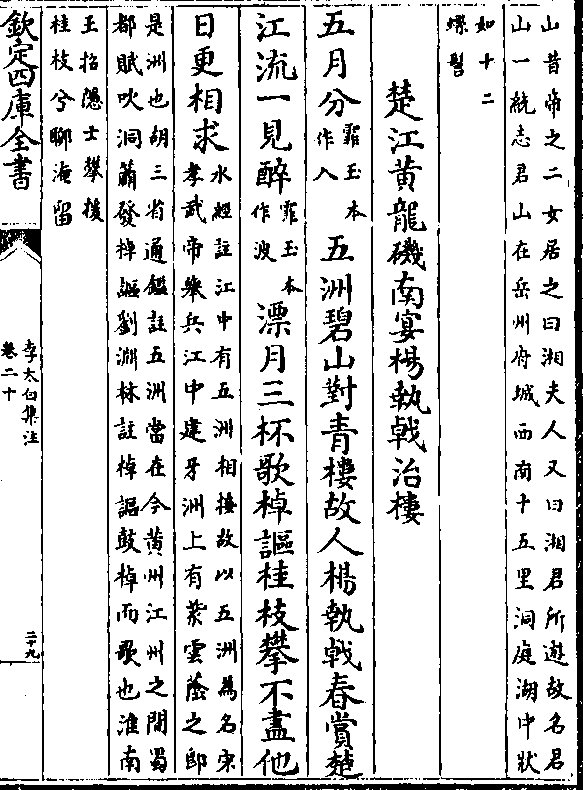 山昔帝之二女居之曰湘夫人又曰湘君所遊故名君
山一統志君山在岳州府城西南十五里洞庭湖中狀
如十二
螺髻
楚江黄龍磯南宴楊執戟治樓
五月分
霏玉本
作入
五洲碧山對青樓故人楊執戟春賞楚
江流一見醉
霏玉本
作波
漂月三杯歌棹謳桂枝攀不盡他
日更相求
水經註江中有五洲相接故以五洲為名宋
孝武帝舉兵江中建牙洲上有紫雲蔭之郎
是洲也胡三省通鑑註五洲當在今黄州江州之間蜀
都賦吹洞簫發棹謳劉淵林註棹謳鼓棹而歌也淮南
王招隱士攀援
桂枝兮聊淹留
欽定四庫全書
李太白集注
卷二十
二十九